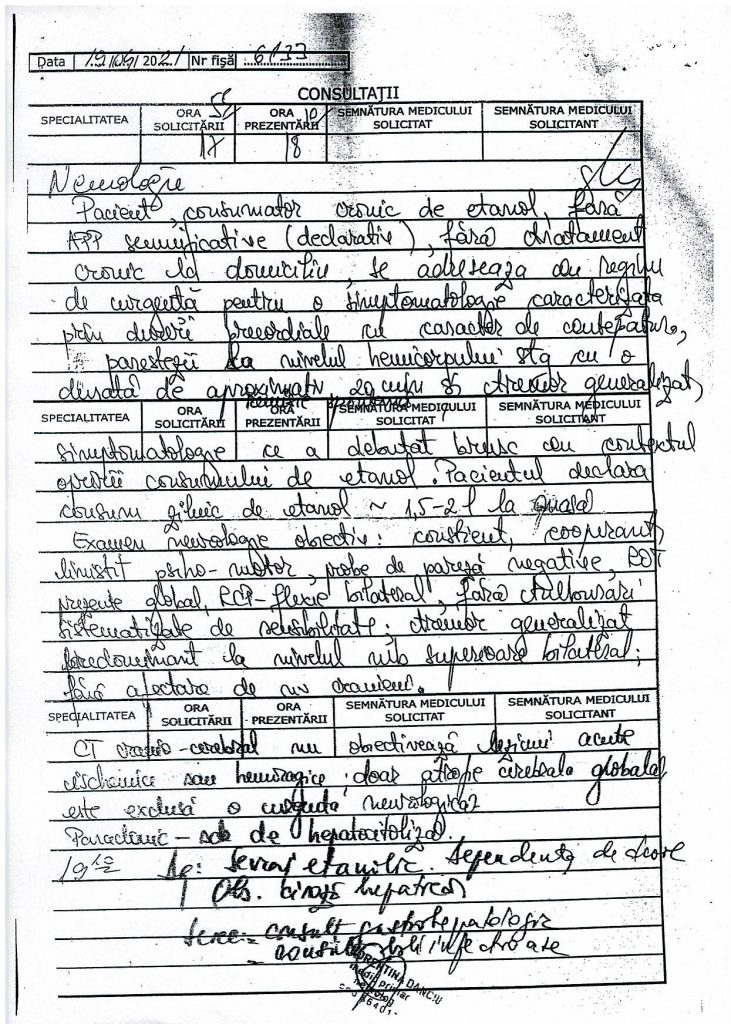 Data 19/04/2021 Nr fişă 6133
CONSULTAŢII
SPECIALITATEA ORA SOLICITĂRII ORA PREZENTĂRII SEMNĂTURA MEDICULUI SOLICITAT SEMNĂTURA MEDICULUI SOLICITANT
17 55 18 10
Neurologie
Pacient, consumator cronic de etanol, fără
APP semnificative (declarative), fără tratament
cronic la domiciliu, se adresează în regim
de urgentă pentru o simptomatologie caracterizată
prin dureri precordiale cu caracter de
parestezii la nivelul hemicorpului stg cu o
durată de aproximativ 20 min si tremor generalizat,
remisie spontana
SPECIALITATEA ORA SOLICITĂRII ORA PREZENTĂRII SEMNĂTURA MEDICULUI SOLICITAT SEMNĂTURA MEDICULUI SOLICITANT
simptomatologie ce a debutat brusc în contextul
opririi consumului de etanol. Pacientul declara
consum zilnic de etanol ~ 1,5-2 l la
Examen neurologic obiectiv: constient, cooperant,
linistit psiho-motor, probe de pareză negative, ROT
prezente global, RCP-flexie bilateral, fără tulburări
sistematizate de sensibilitate; tremor generalizat
predominant la nivelul mb superioare bilateral;
fără afectare de nv cranieni.
SPECIALITATEA ORA SOLICITĂRII ORA PREZENTĂRII SEMNĂTURA MEDICULUI SOLICITAT SEMNĂTURA MEDICULUI SOLICITANT
CT cranio-cerebral nu obiectivează leziuni acute
ischemice sau hemoragice; doar atrofie cerebrala globala,
este exclusă o urgenta neurologica
Paraclinic - sdr de hepatocitoliză.
19 Dg: Sevraj etanilic. Dependentă de alcool
Obs. ciroză hepatică
consult gastrohepatologie
- consult boli infectioase
FLORENTINA DANCIU
medic primar
neurolog